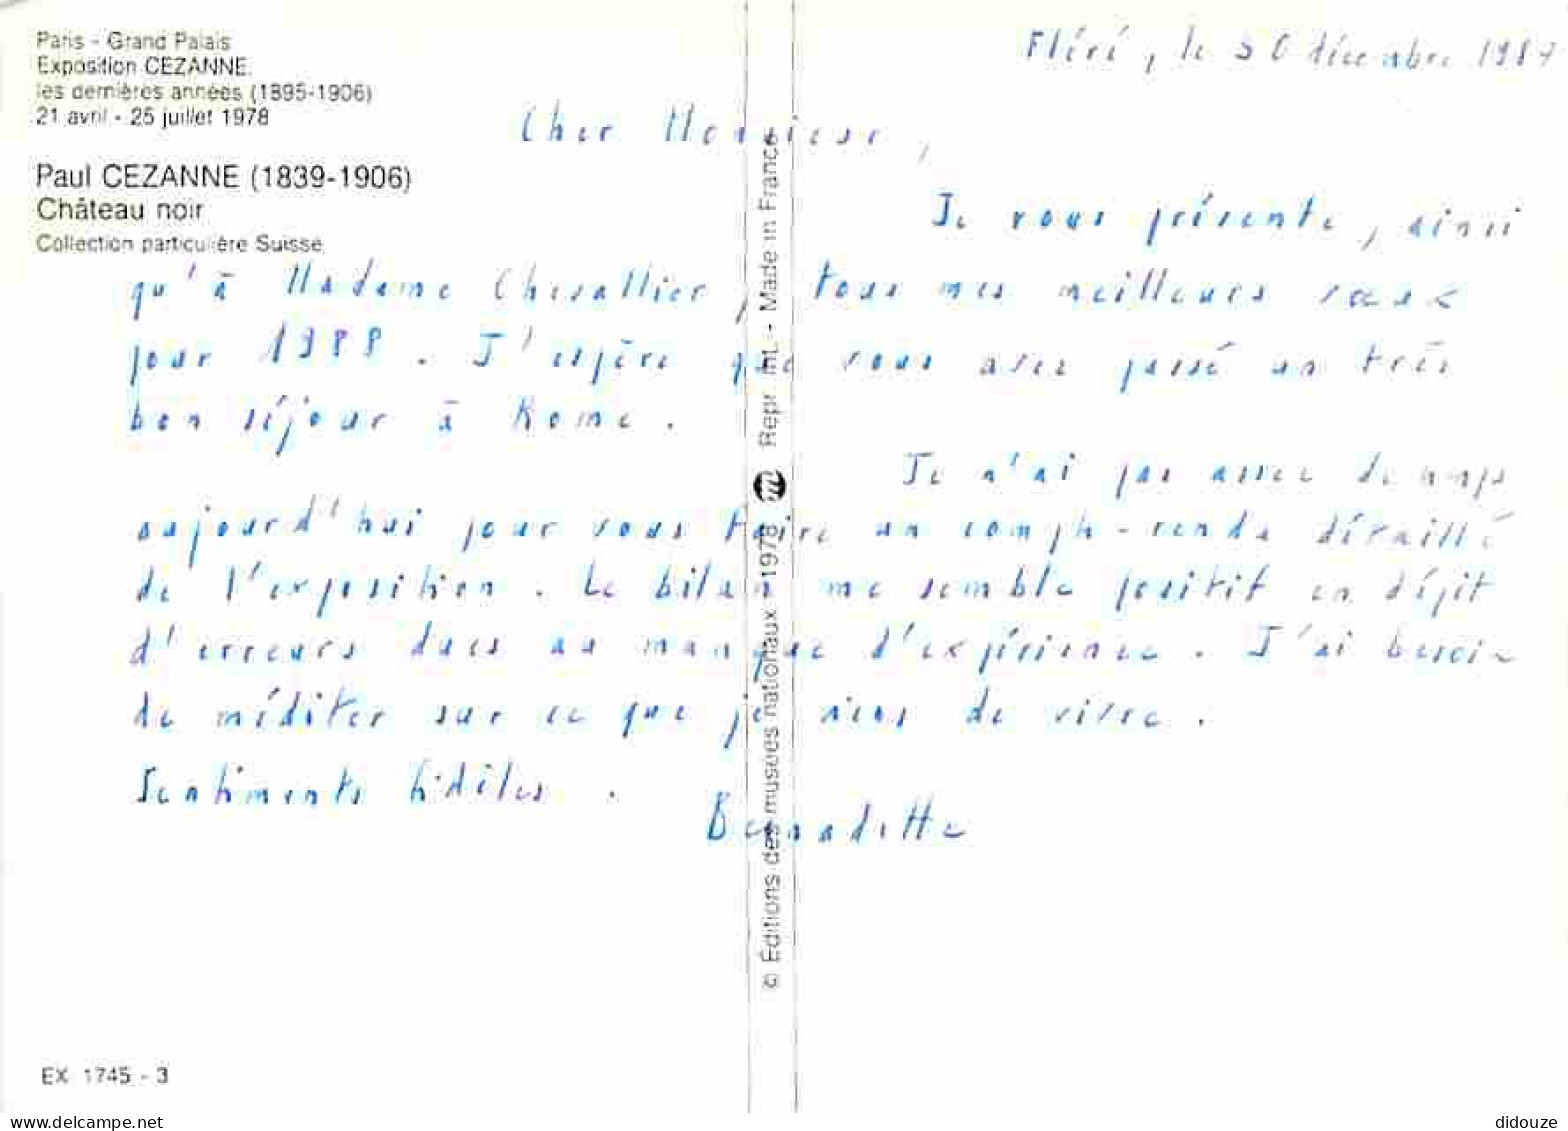 Paris - Grand Palais
Exposition CEZANNE
les dernières années (1895-1906)
21 avril - 25 juillet 1978
Paul CEZANNE (1839-1906)
Château noir
Collection particulière Suisse
Fléré, le 30 décembre 1987
Cher Monsieur,
Je vous présente, ainsi
qu'à Madame Chevallier, tous mes meilleurs vœux
pour 1988. J'espère que vous avez passé un très
bon séjour à Rome.
Je n'ai pas assez de temps
aujourd'hui pour vous faire un compte-rendu détaillé
de l'exposition. Le bilan me semble positif en dépit
d'erreurs dues au manque d'expérience. J'ai besoin
de méditer sur ce que je viens de vivre.
Sentiments fidèles.
Bernadette
© Éditions des musées nationaux - 1978 Repr. int. - Made in France
EX 1745 - 3
www.delcampe.net
didouze